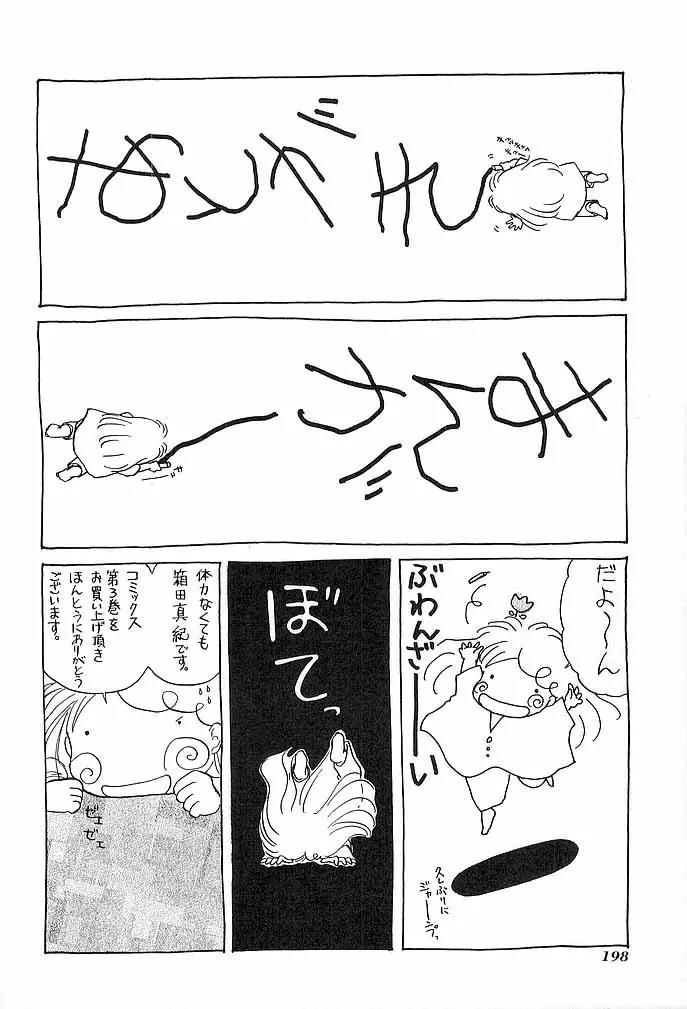 あとがき
まんがー
だよ〜ん
ぶわんざーーい
久しぶりに
ジャーーンプっ
ぼてっ
体力なくても
箱田真紀です。
コミックス
第3巻を
お買い上げ頂き
ほんとうにありがとう
ございます。
ゼェ
ゼェ
198